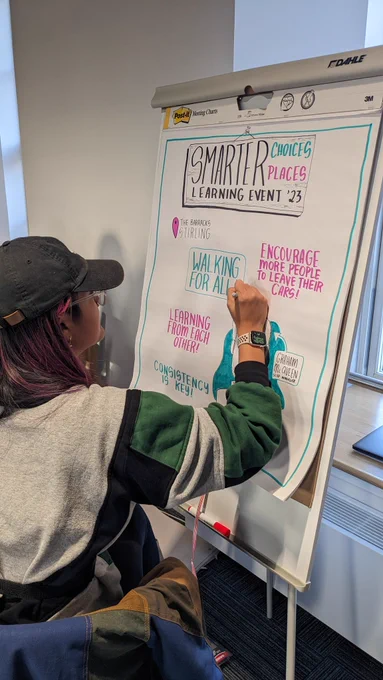 DAHLE
Post-it Meeting Charts
3M
SMARTER CHOICES
PLACES
LEARNING EVENT '23
THE BARRACKS
STIRLING
WALKING
FOR ALL
ENCOURAGE
MORE PEOPLE
TO LEAVE THEIR
CARS!
LEARNING
FROM EACH
OTHER!
CONSISTENCY
IS KEY!
GRAHAM
McQUEEN